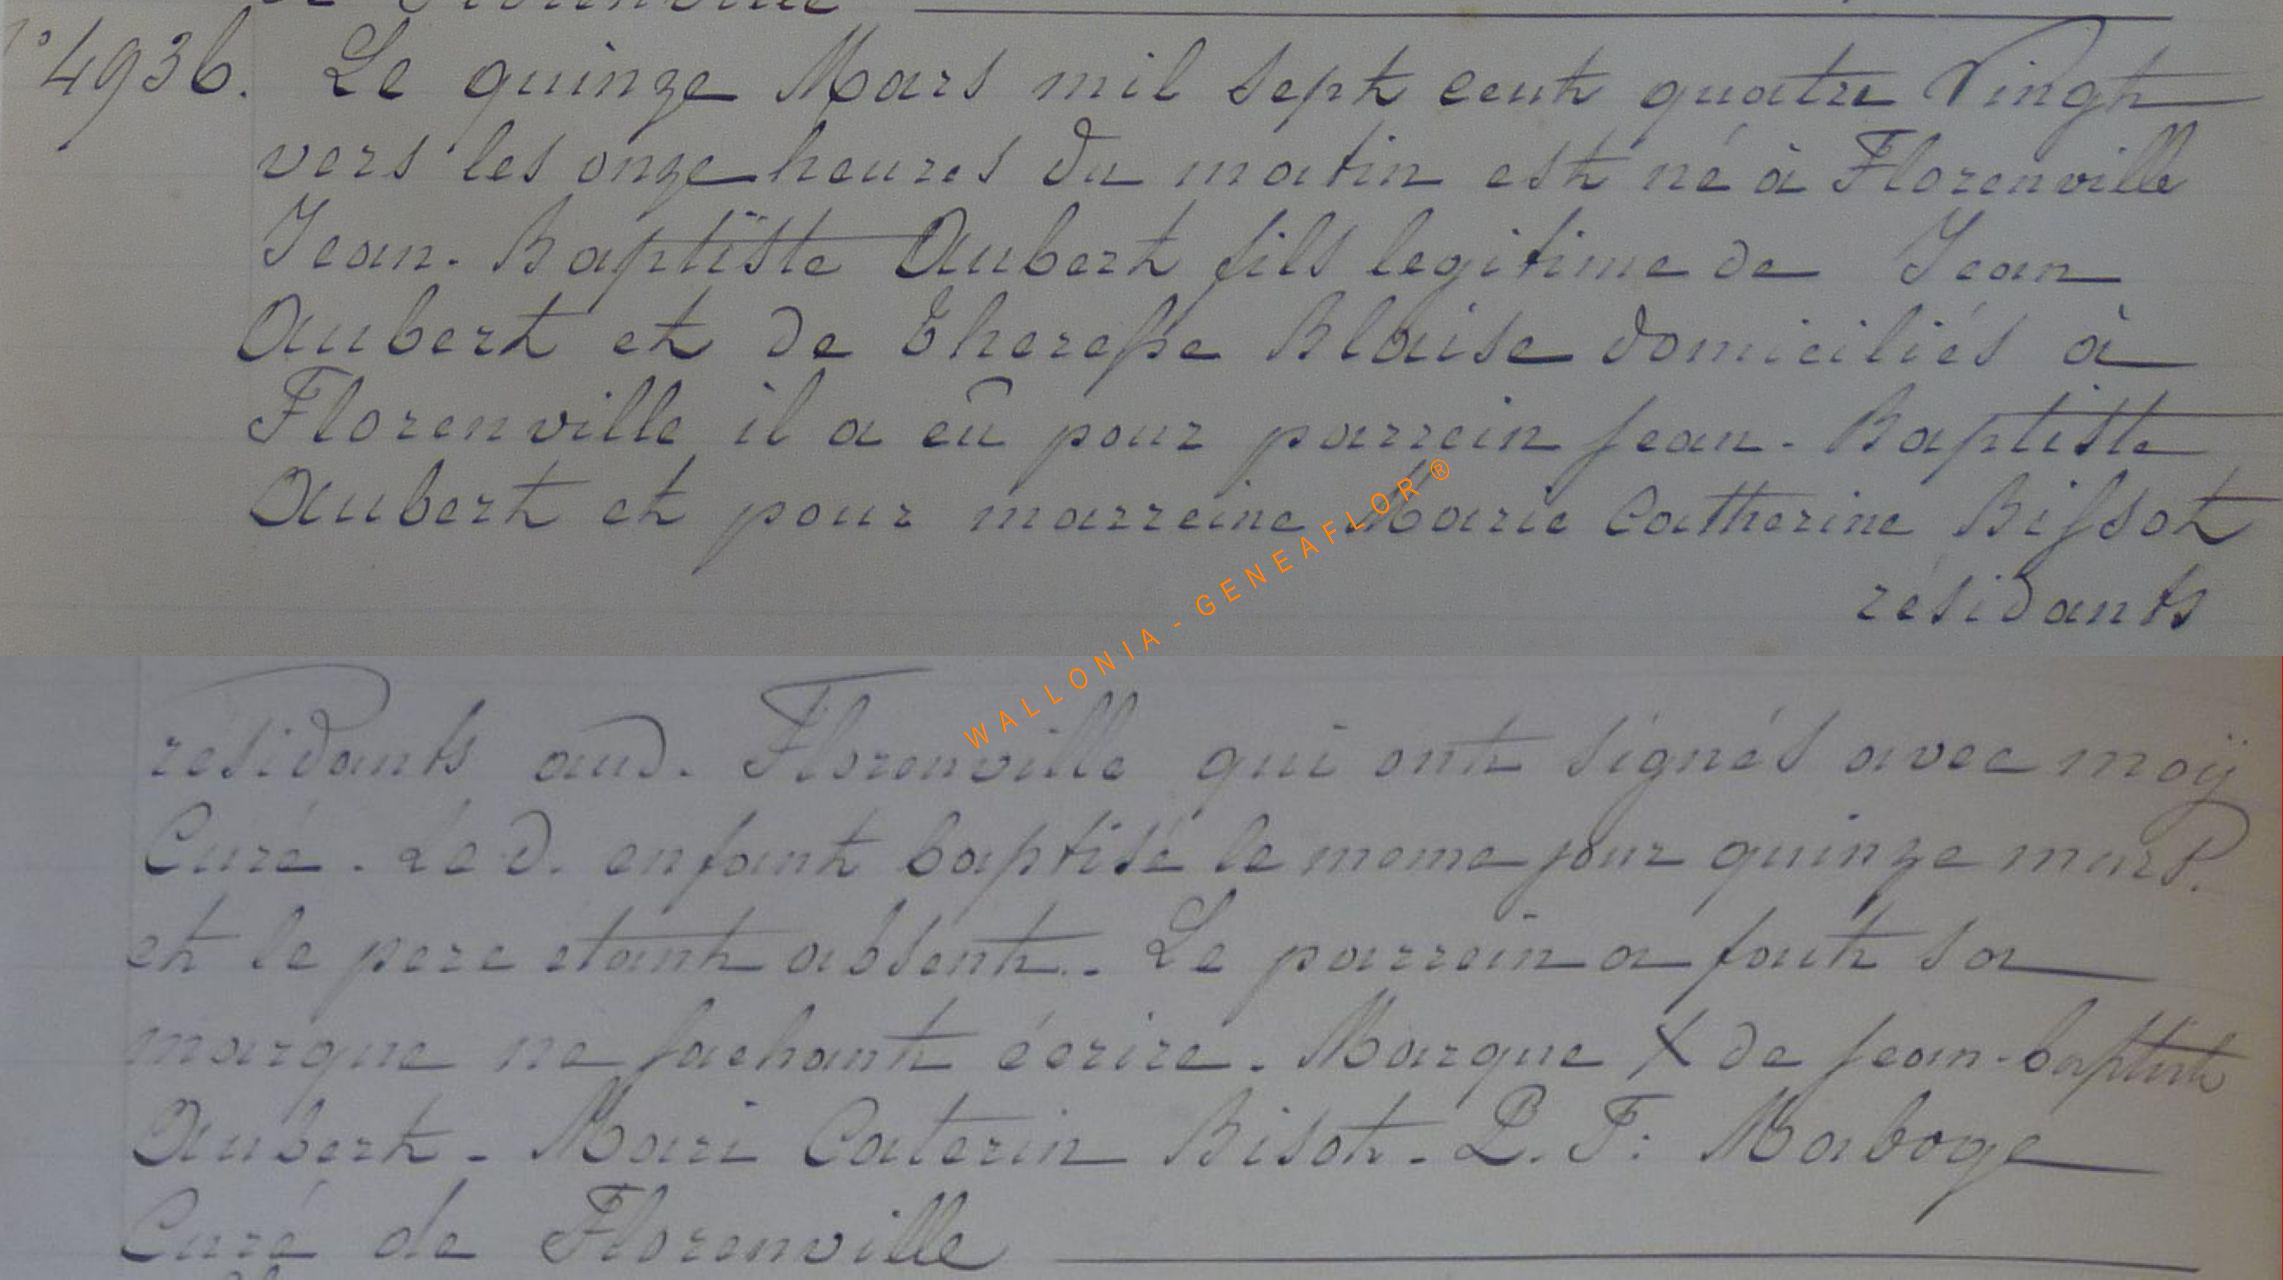 de Florenville
N° 4936. Le quinze Mars mil sept cent quatre Vingt
vers les onze heures du matin est né à Florenville
Jean-Baptiste Aubert fils legitime de Jean
Aubert et de Theresse Blaise domiciliés à
Florenville il a eû pour parrein Jean-Baptiste
Aubert et pour marreine Marie Catherine Bissot
résidants
WALLONIA - GENEAFLOR ®
résidants aud. Florenville qui ont signés avec moÿ
Curé. Le d. enfant baptisé le meme jour quinze mars.
et le pere étant absent. Le parrein a fait sa
marque ne sachant écrire. Marque X de Jean-baptiste
Aubert. Mari Caterin Bisot. P. F: Maboge
Curé de Florenville